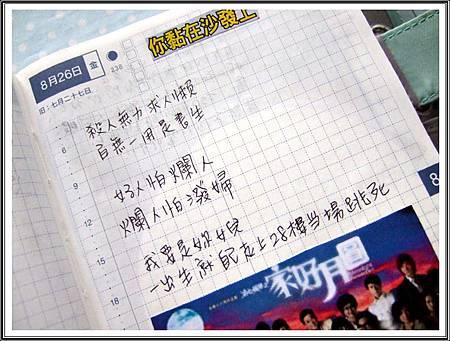 你黏在沙發上
8月26日 金
238
旧:七月二十七日
6
殺人無力求人懶
百無一用是書生
9
好人怕爛人
12
爛人怕潑婦
15
我要是妳女兒
一出生就爬上28樓當場跳死
18
家好月圓
8